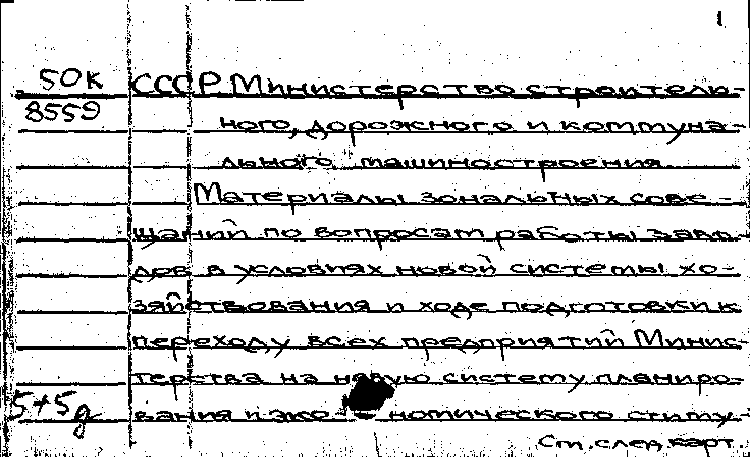 1
50К СССР Министерство строитель-
8559 ного, дорожного и коммуна-
льного машиностроения
Материалы зональных сове-
щаний по вопросам работы заво-
дов в условиях новой системы хо-
зяйствования и ходе подготовки к
переходу всех предприятий Минис-
терства на новую систему планиро-
5+5д вания и эко- номического стиму-
См. след. карт.